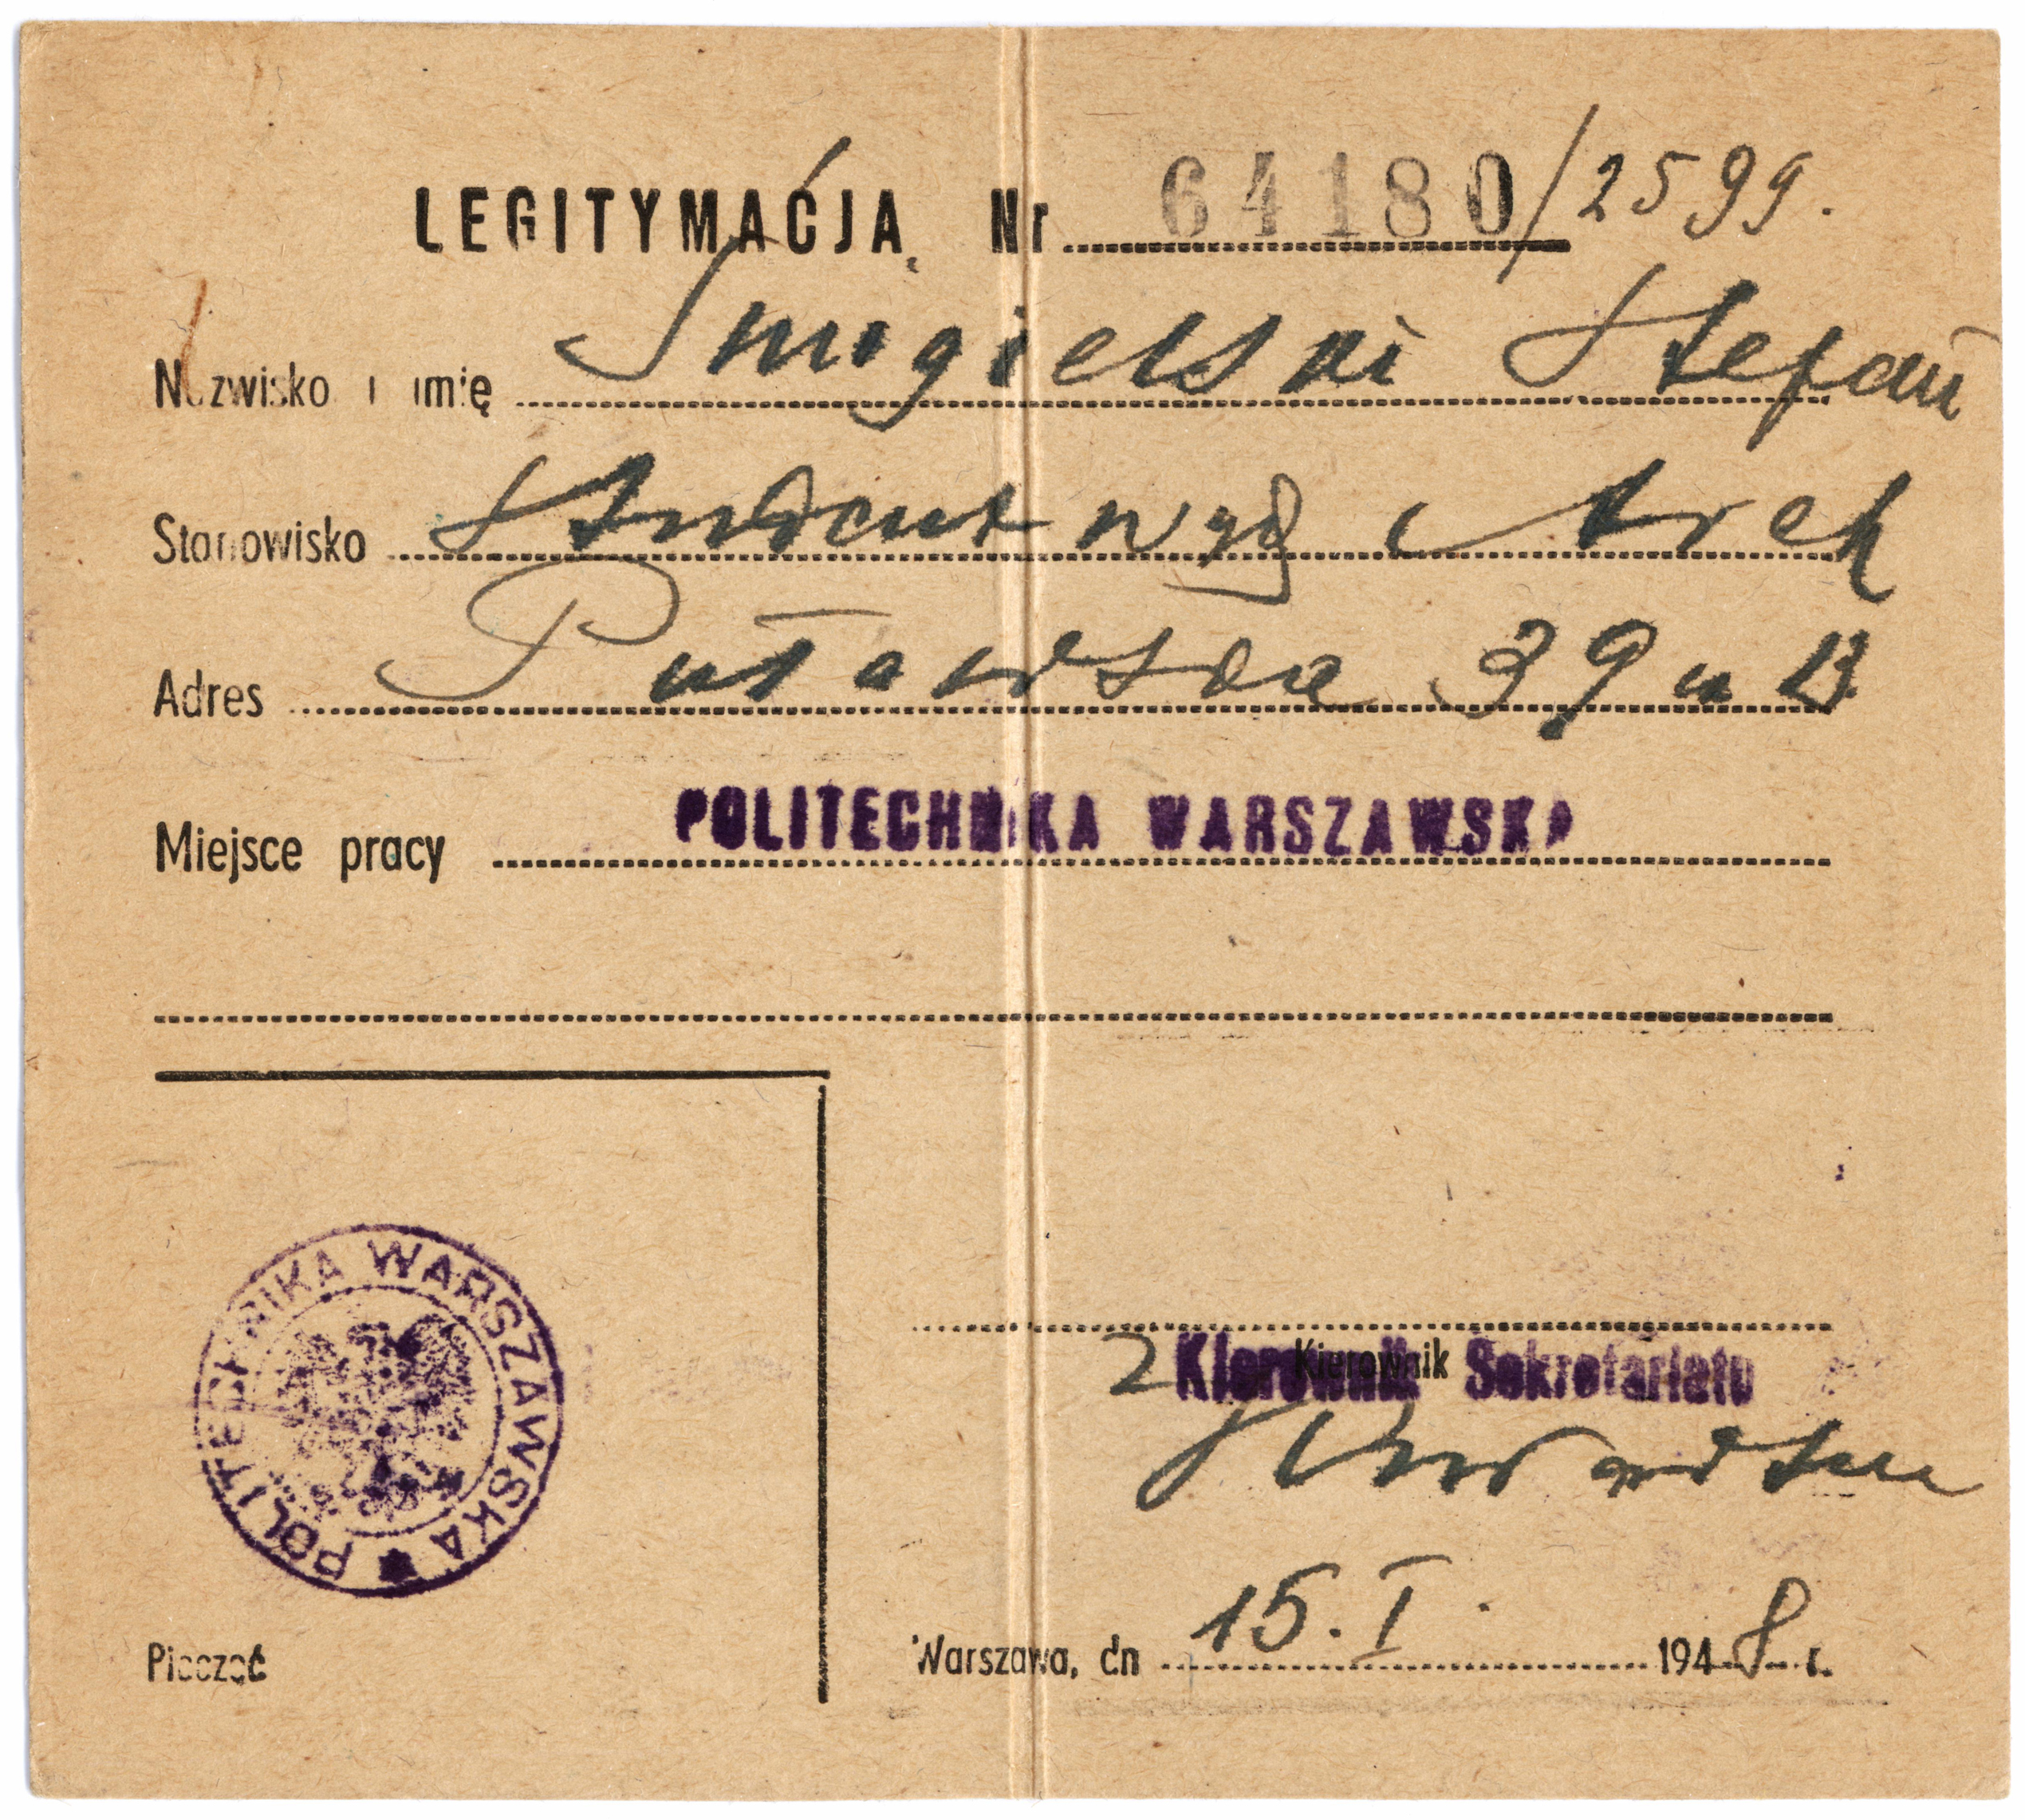 LEGITYMACJA Nr 64180/2599.
Nazwisko i imię Śmigielski Stefan
Stanowisko Student wyd Arch
Adres Puławska 39 m 13
Miejsce pracy POLITECHNIKA WARSZAWSKA
POLITECHNIKA WARSZAWSKA
Kierownik
Kierownik Sekretariatu
Pieczęć
Warszawa, dn 15.I. 1948 r.